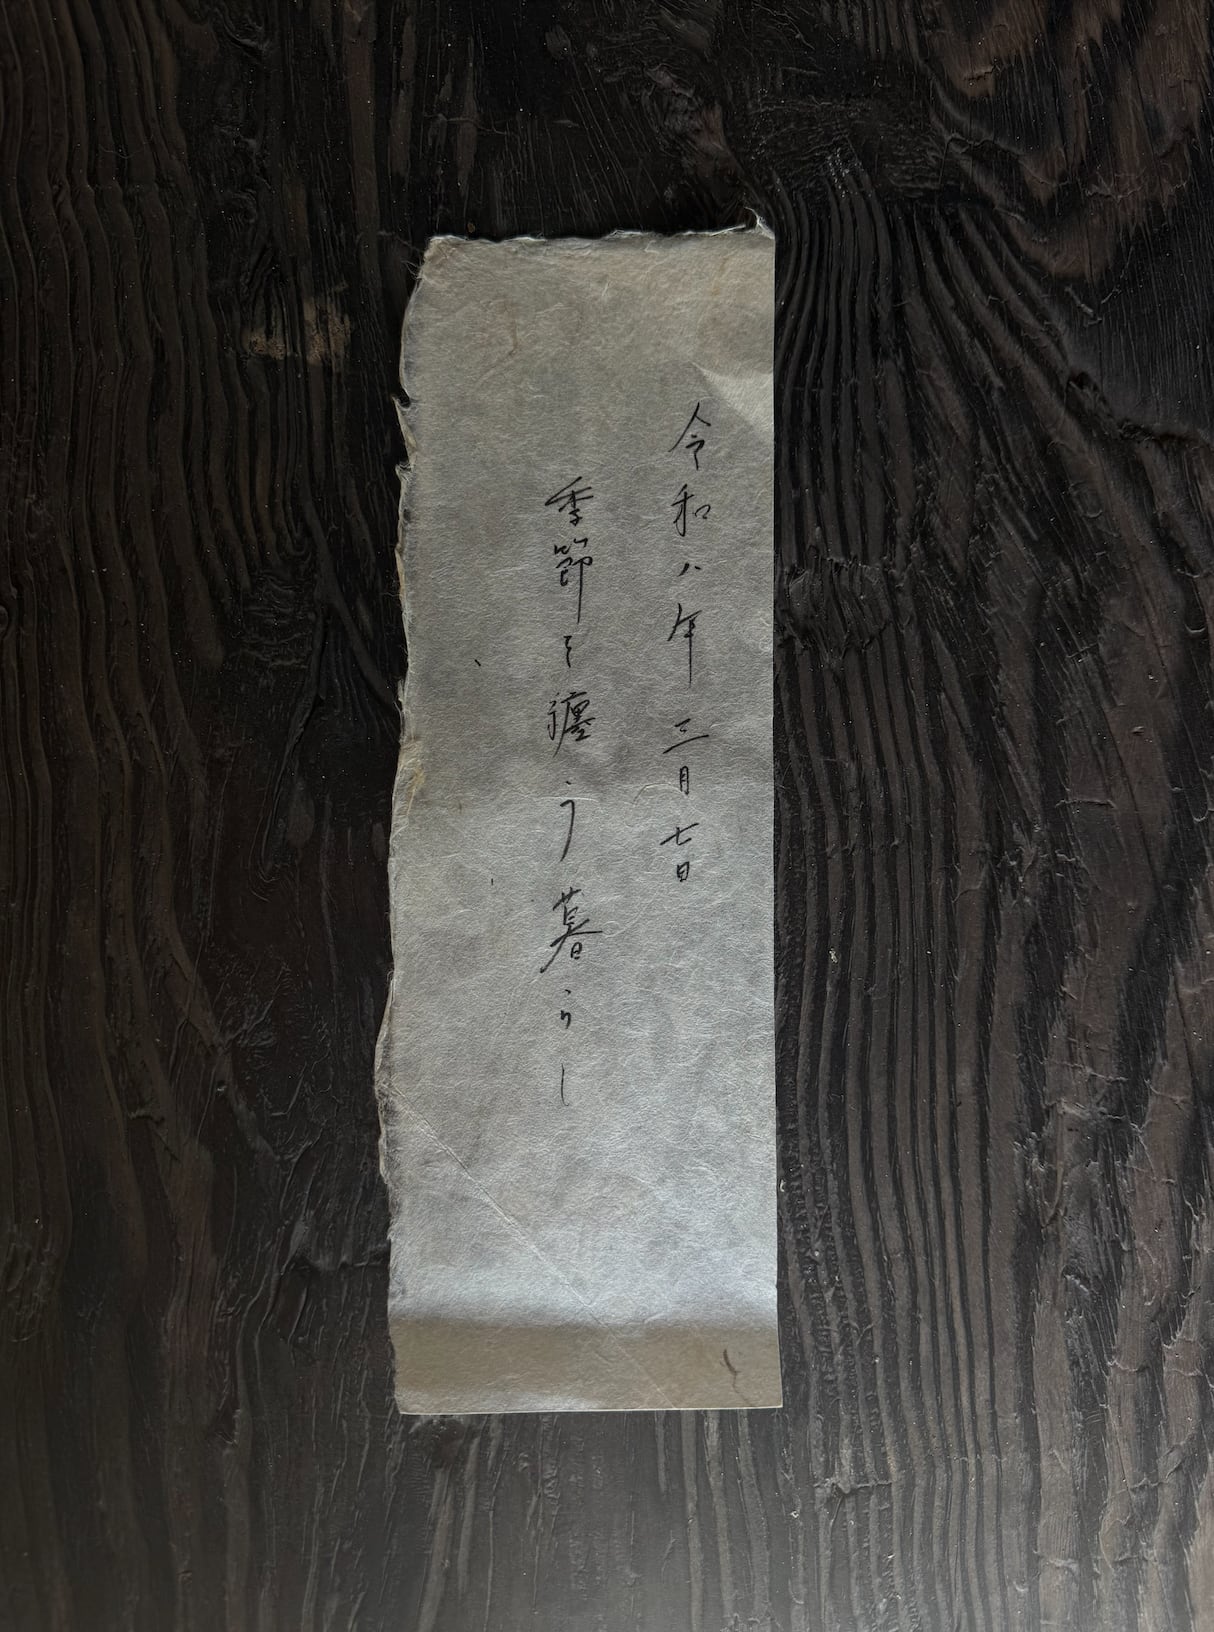 令和八年 三月七日
季節を纏う暮らし